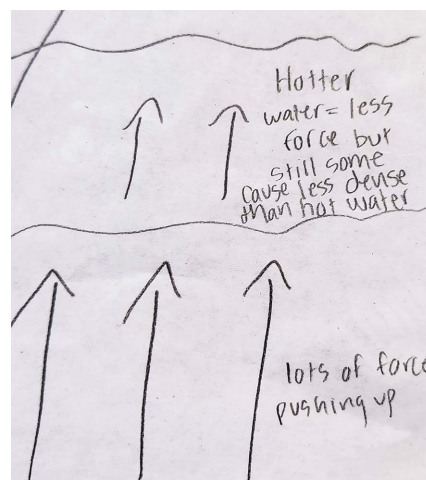 Hotter
water= less
force but
still some
cause less dense
than hot water
lots of force
pushing up